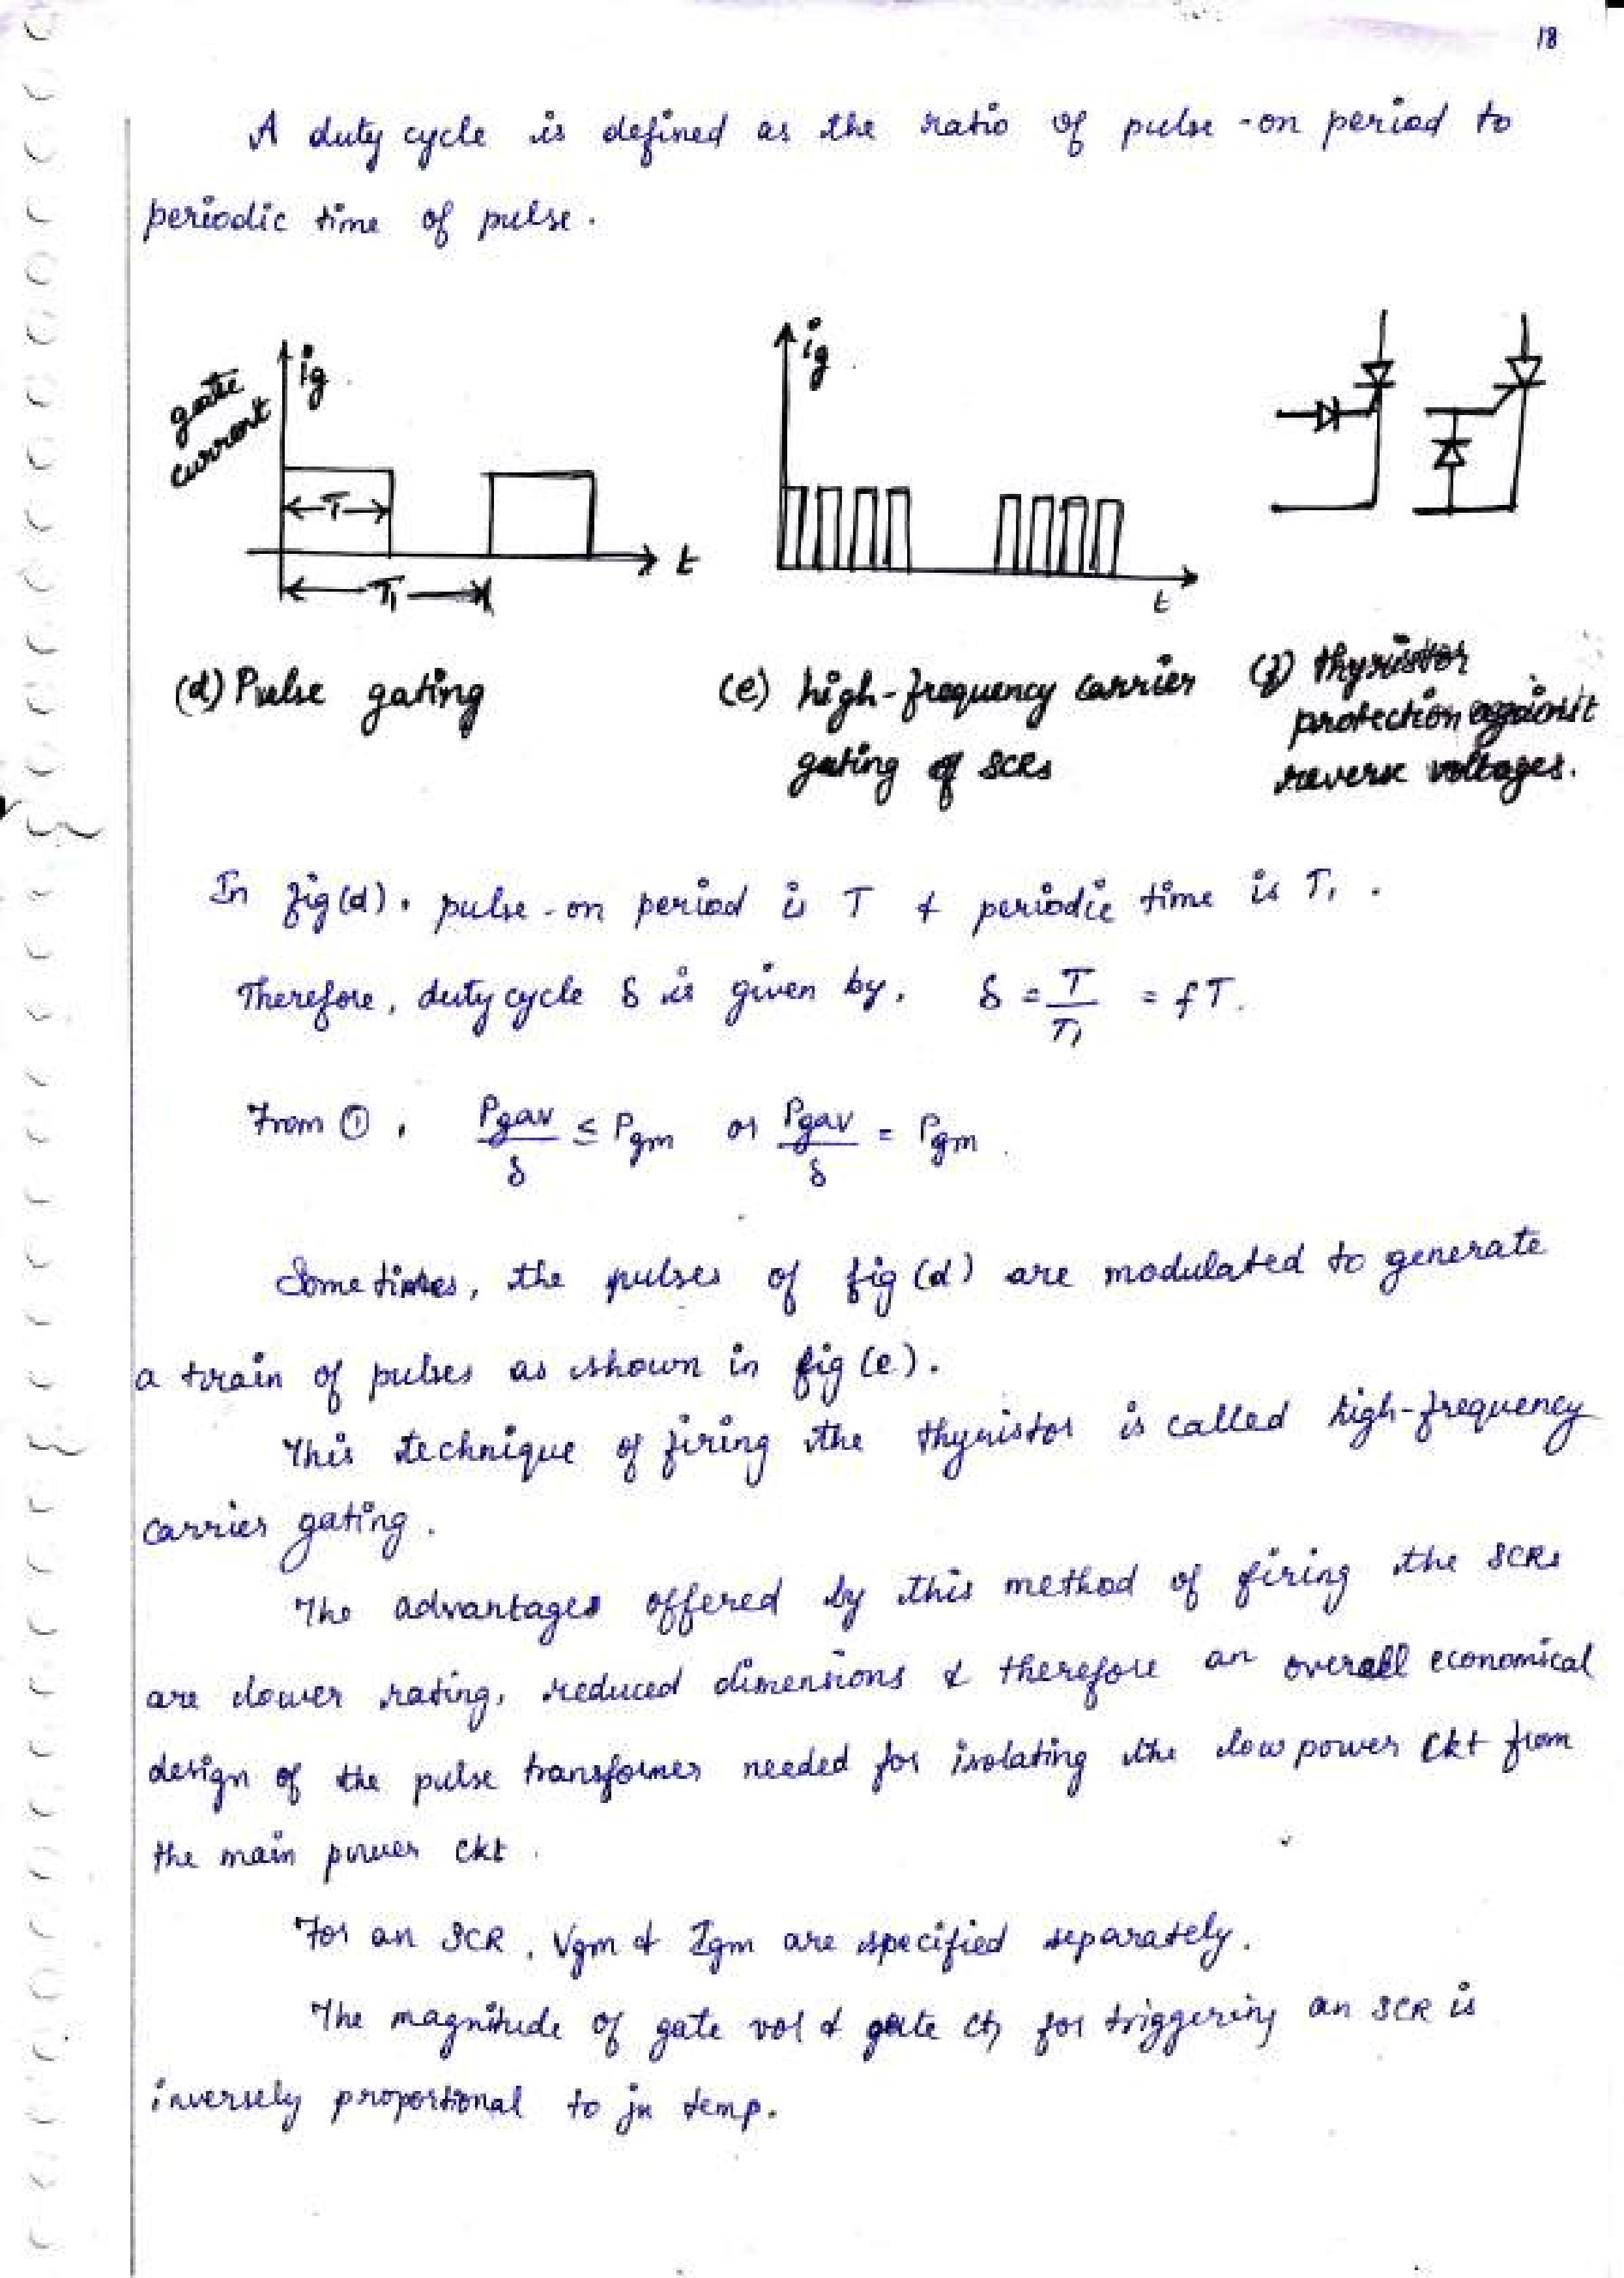 18
A duty cycle is defined as the ratio of pulse-on period to
periodic time of pulse.
gate
current
ig
T
T1
t
ig
t
(d) Pulse gating
(e) high-frequency carrier
gating of SCRs
(f) thyristor
protection against
reverse voltages.
In fig(d), pulse-on period is T & periodic time is T1.
Therefore, duty cycle δ is given by, δ = T/T1 = fT.
From ①, Pgav/δ ≤ Pgm or Pgav/δ = Pgm
Sometimes, the pulses of fig (d) are modulated to generate
a train of pulses as shown in fig (e).
This technique of firing the thyristor is called high-frequency
carrier gating.
The advantages offered by this method of firing the SCRs
are lower rating, reduced dimensions & therefore an overall economical
design of the pulse transformer needed for isolating the low power ckt from
the main power ckt.
For an SCR, Vgm & Igm are specified separately.
The magnitude of gate vol & gate for triggering an SCR is
inversely proportional to jn temp.